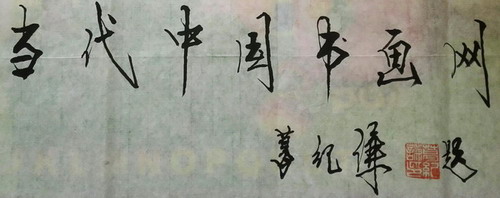 当代中国书画网
纪谦 题